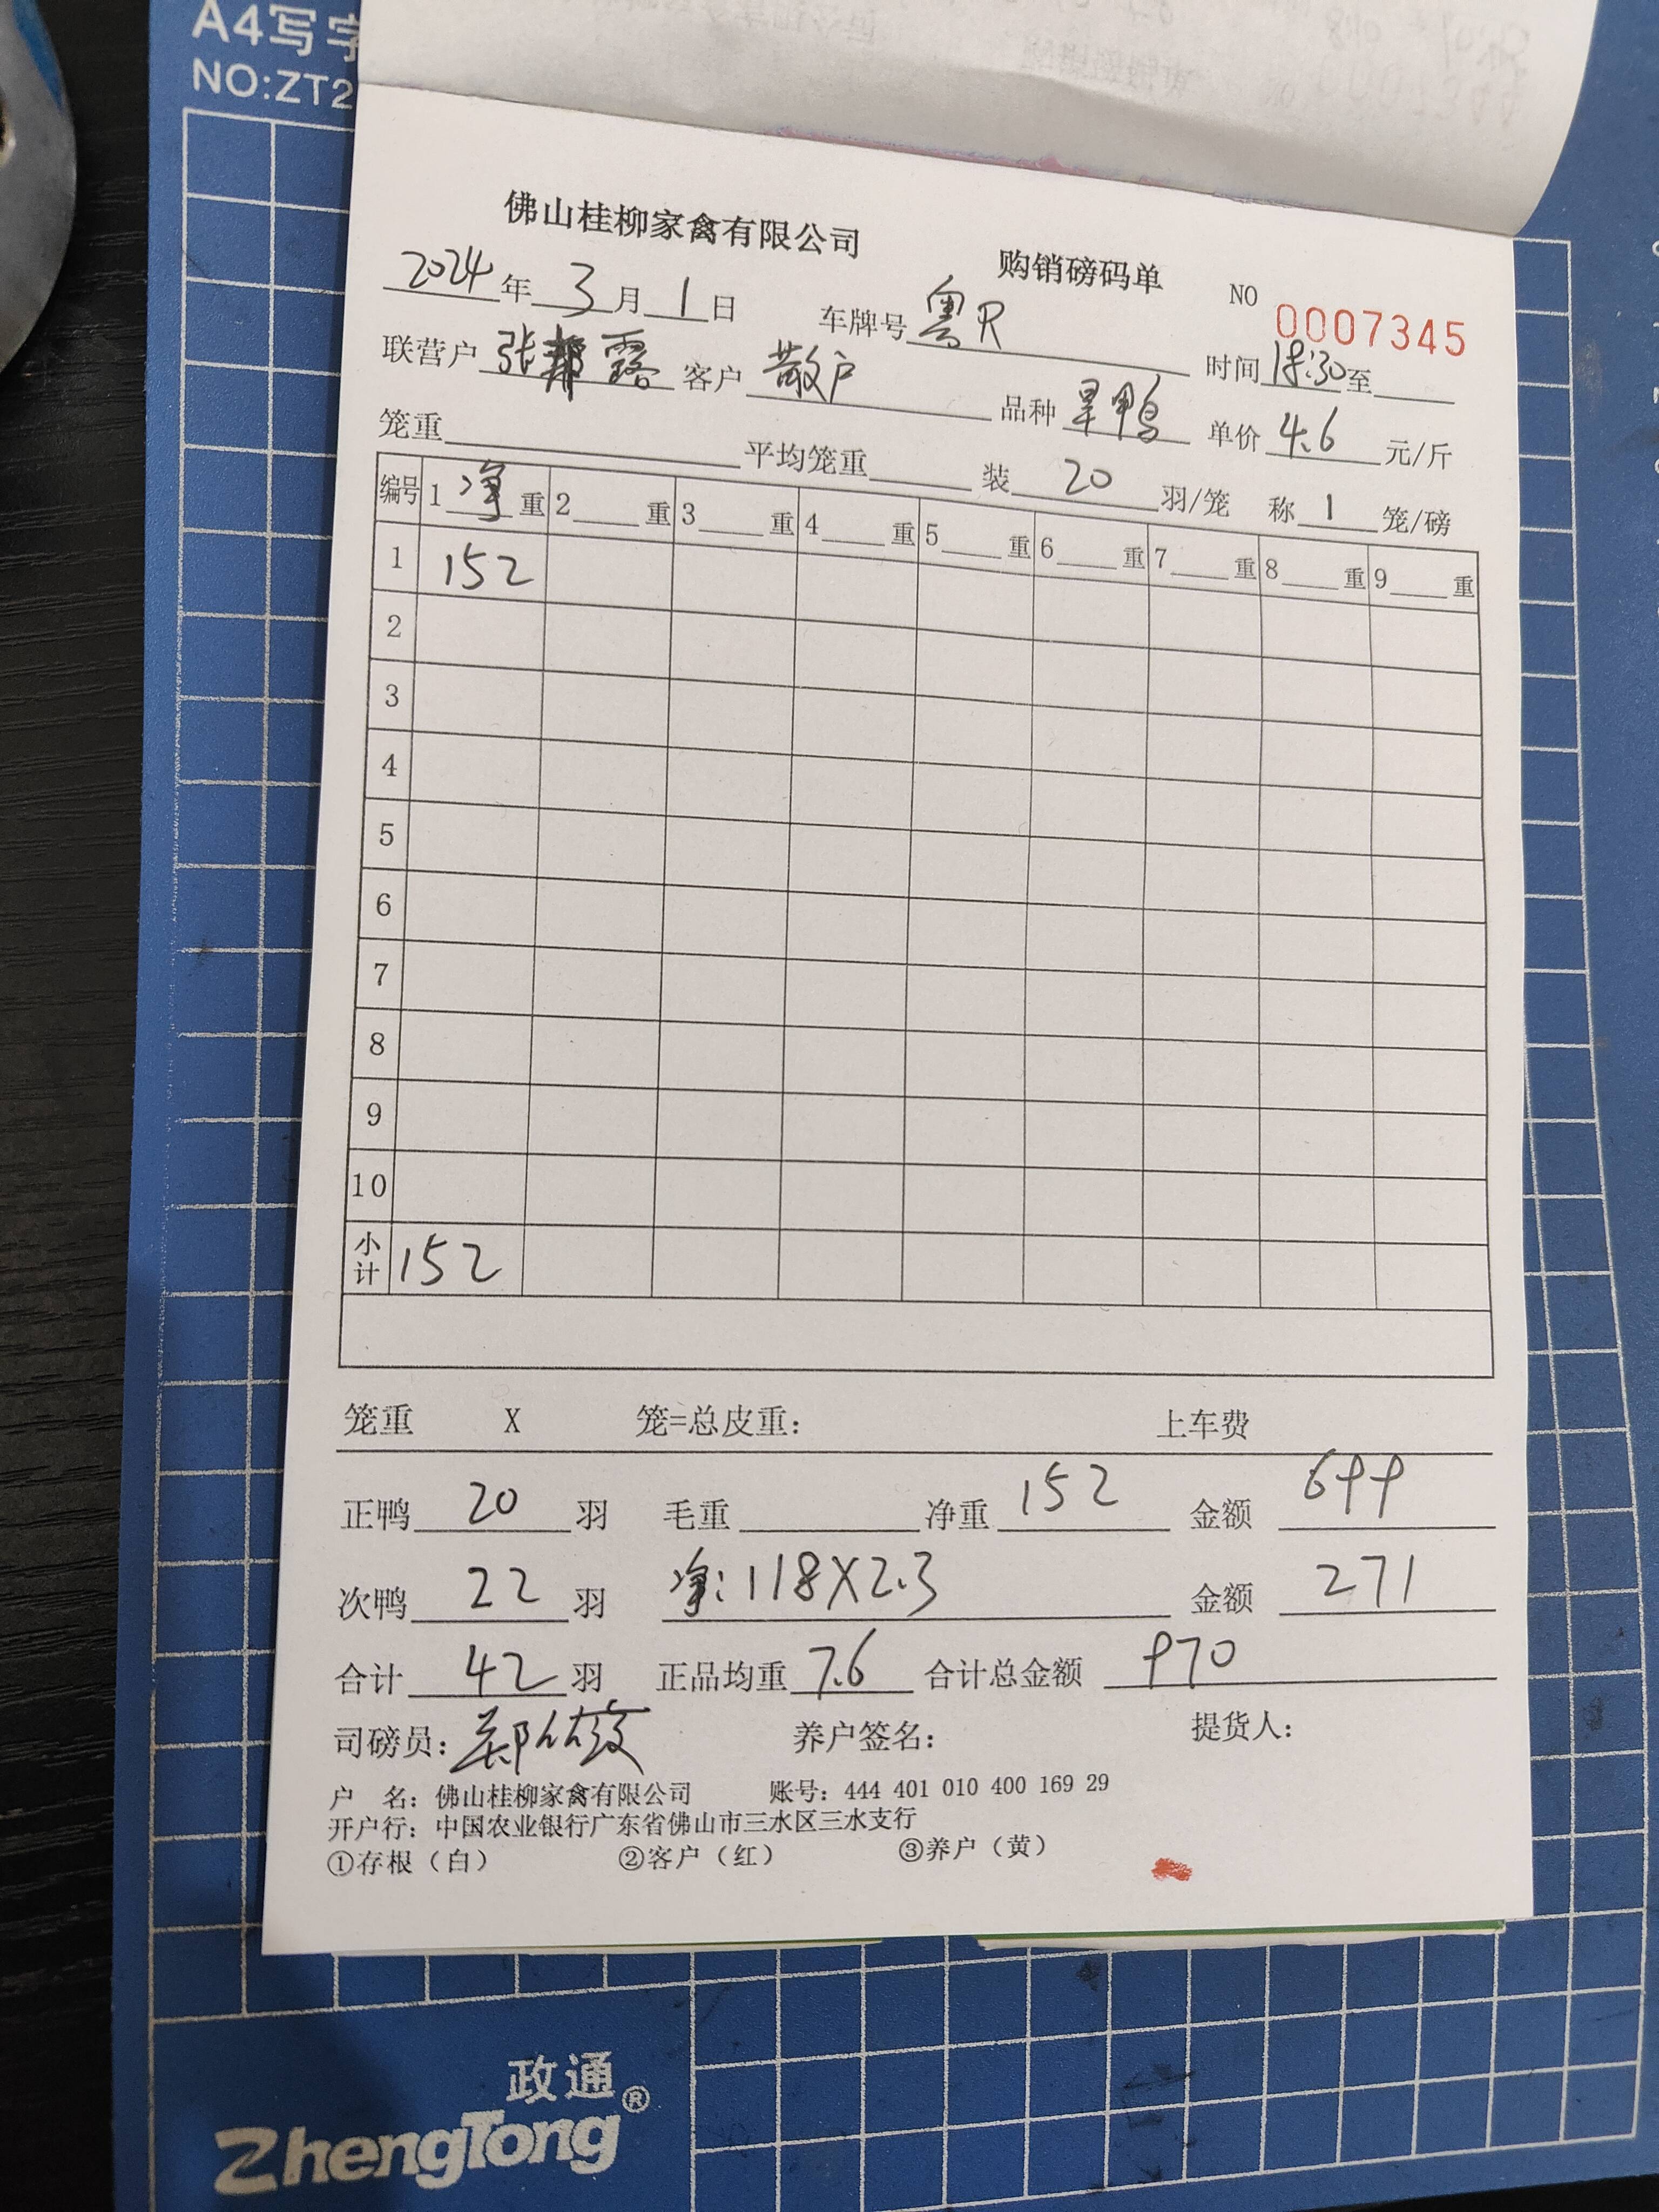 A4写字
NO:ZT2
佛山桂柳家禽有限公司 购销磅码单 NO 0007345
2024年3月1日 车牌号 粤R 时间 18:30至
联营户 张邦露 客户 散户 品种 旱鸭 单价 4.6 元/斤
笼重 平均笼重 装 20 羽/笼 称 1 笼/磅
编号 1 净 重 2 重 3 重 4 重 5 重 6 重 7 重 8 重 9 重
1 152
2
3
4
5
6
7
8
9
10
小计 152
笼重 X 笼=总皮重: 上车费
正鸭 20 羽 毛重 净重 152 金额 699
次鸭 22 羽 净:118X2.3 金额 271
合计 42 羽 正品均重 7.6 合计总金额 970
司磅员: 养户签名: 提货人:
户 名: 佛山桂柳家禽有限公司 账号: 444 401 010 400 169 29
开户行: 中国农业银行广东省佛山市三水区三水支行
①存根（白） ②客户（红） ③养户（黄）
政通®
ZhengTong